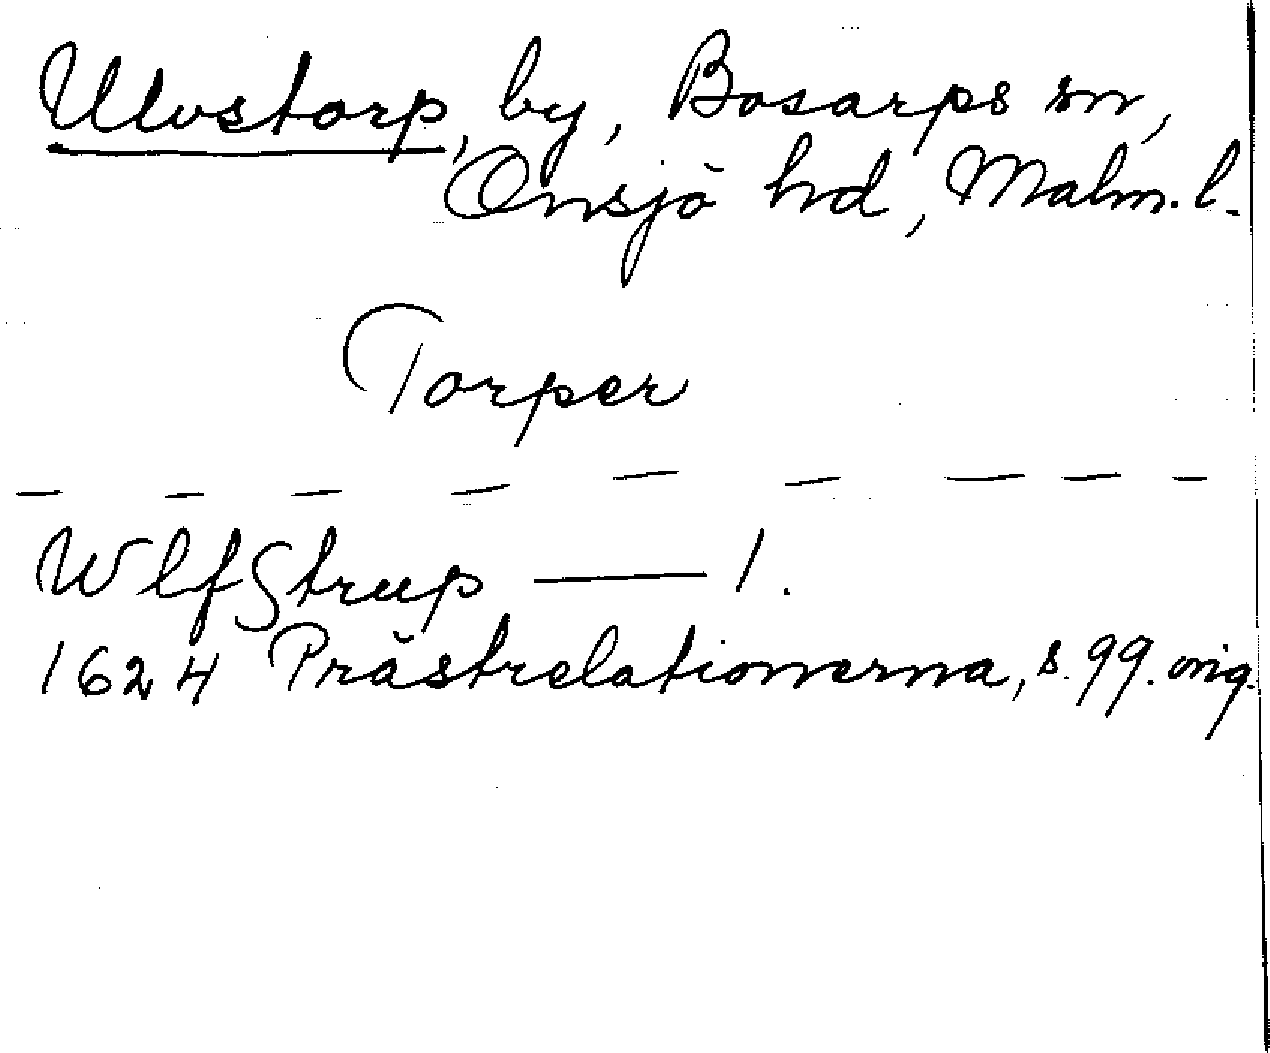 Ulvstorp, by, Bosarps sn,
Onsjö hd, Malm. l.
Torper
— — — — — — — — —
WlfStrup — 1.
1624 Prästrelationerna, s. 99. orig.